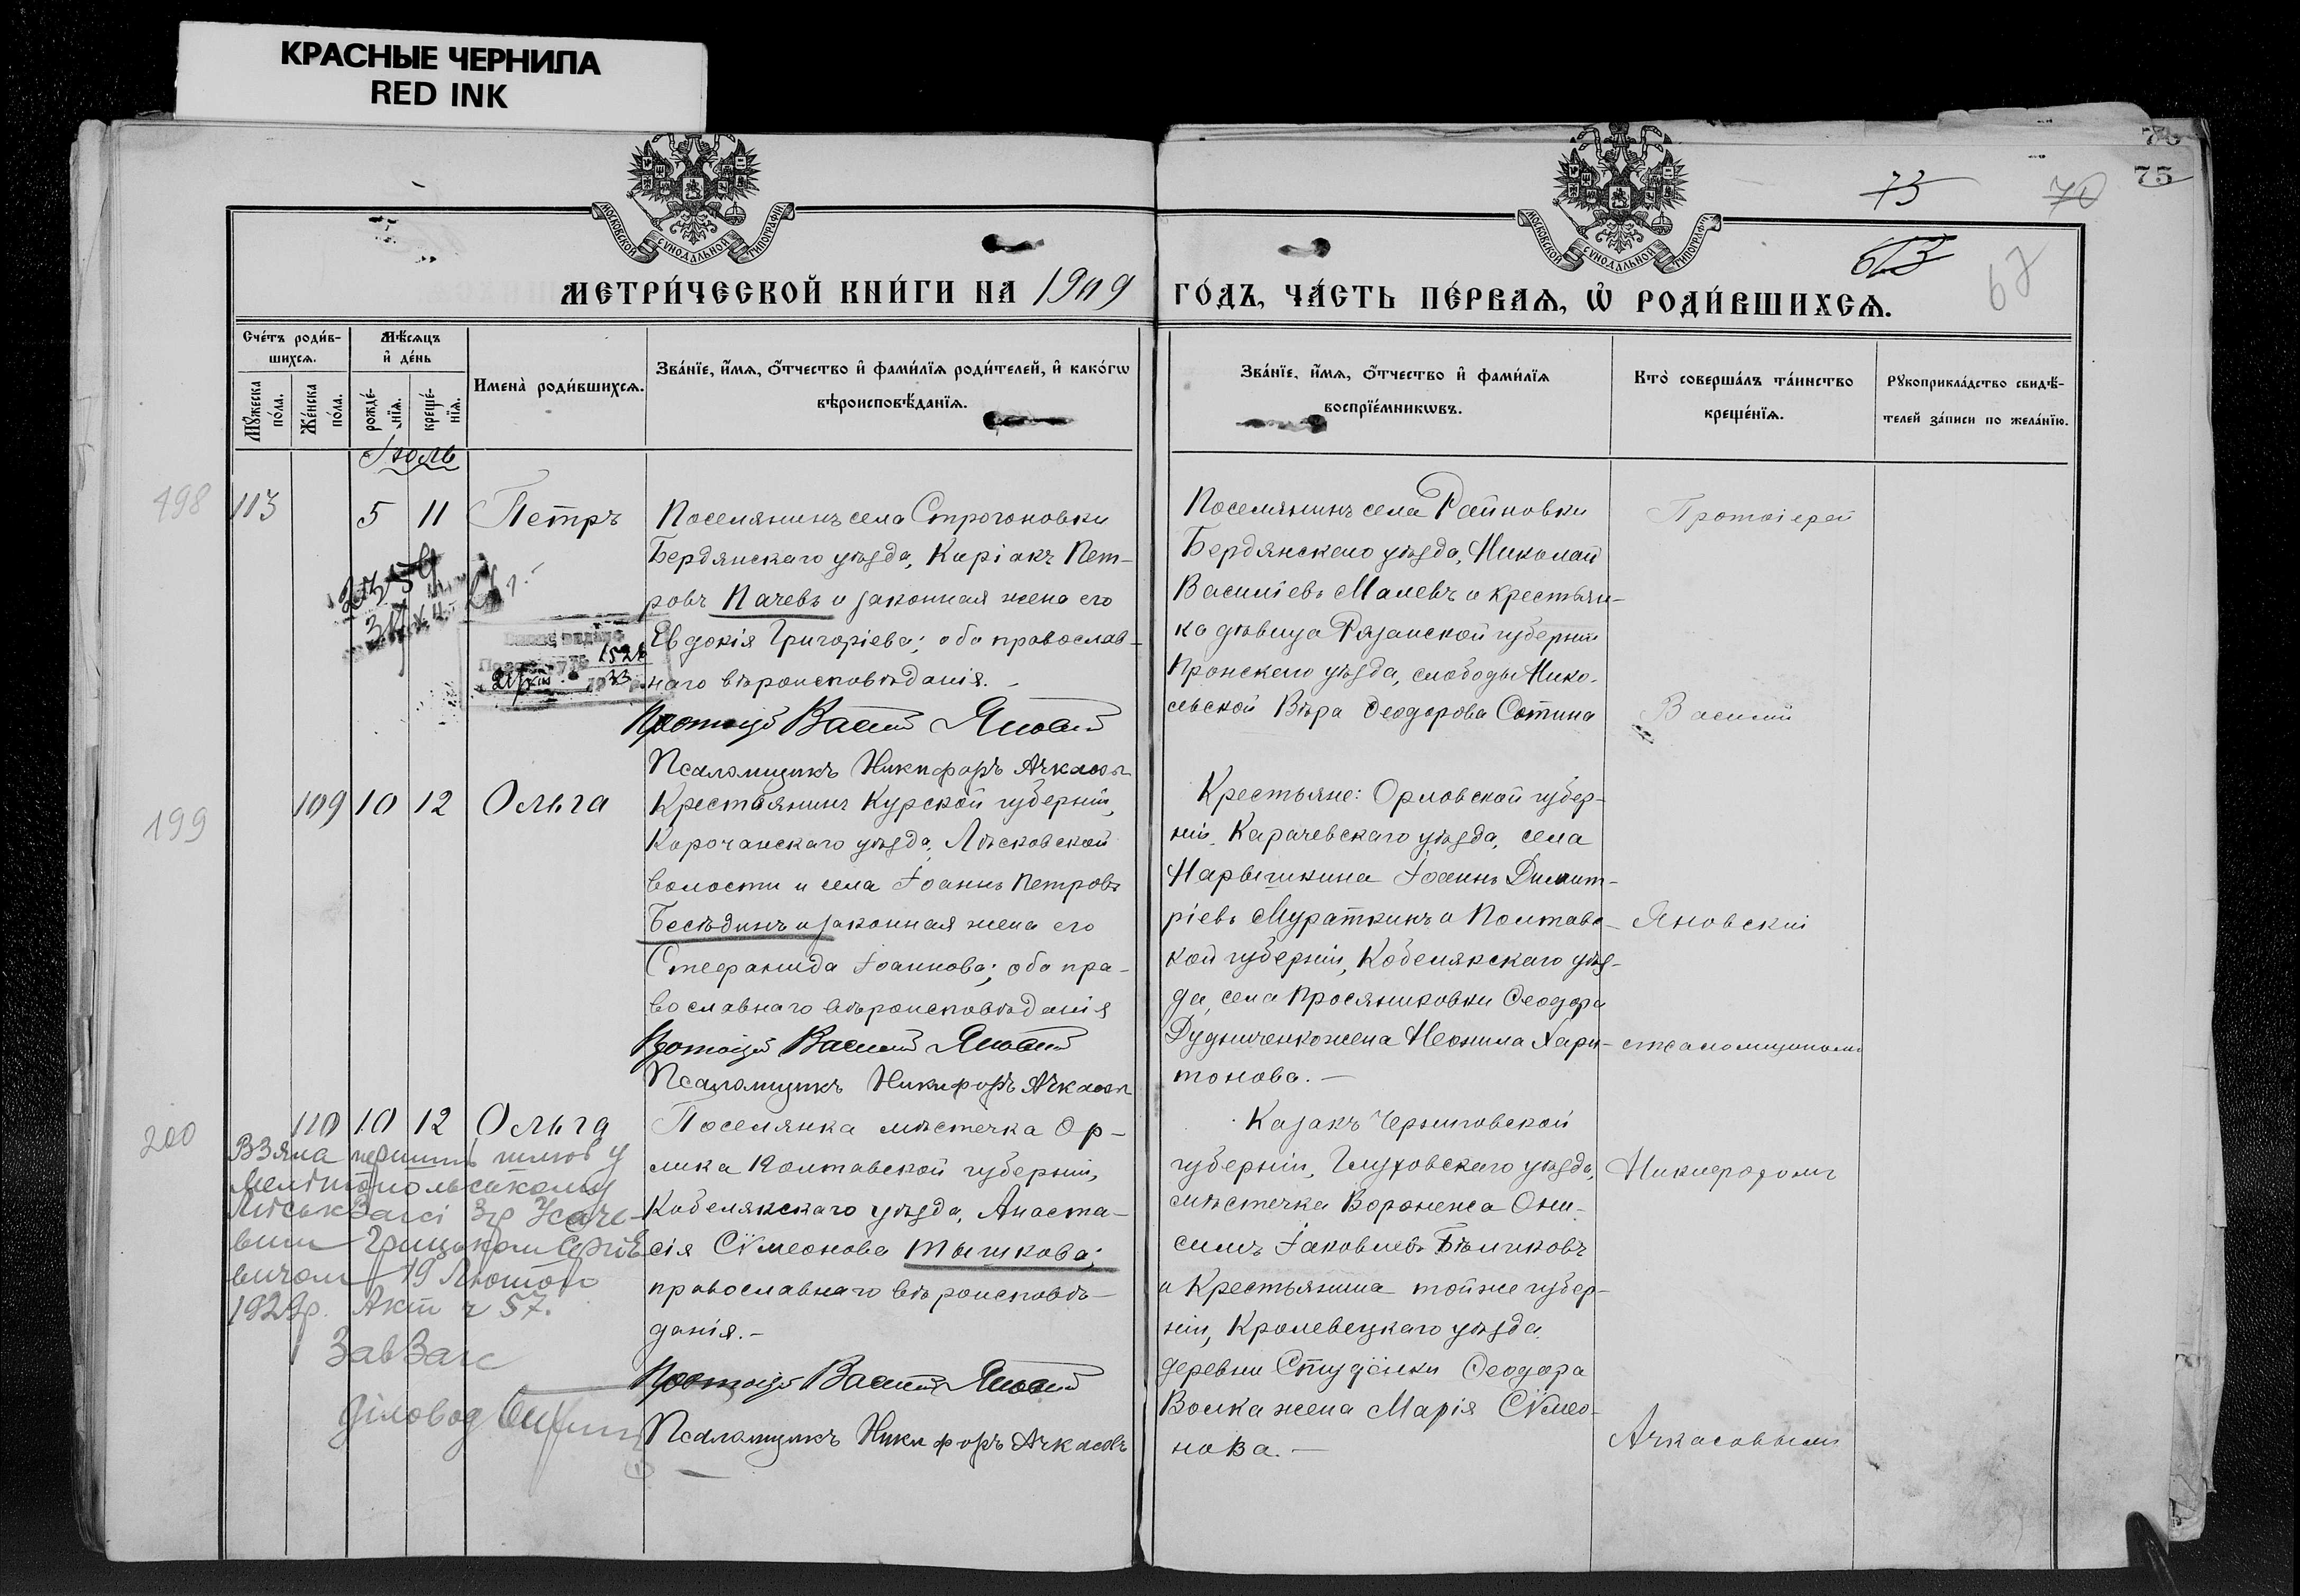 КРАСНЫЕ ЧЕРНИЛА
RED INK
75
73
70
75
МОСКОВСКОЙ СУНОДАЛЬНОЙ ТИПОГРАФІИ
МОСКОВСКОЙ СУНОДАЛЬНОЙ ТИПОГРАФІИ
67
МЕТРИ́ЧЕСКОЙ КНИ́ГИ НА 1909
ГО́ДЪ, ЧА́СТЬ ПЕ́РВАѦ, Ѡ҆ РОДИ́ВШИХСѦ.
Сче́тъ роди́в-
шихсѧ.
Мꙋжеска по́ла.
Же́нска по́ла.
Мѣ́сѧцъ
и҆ де́нь
рожде́-
нїѧ.
креще́-
нїѧ.
Имена̀ роди́вшихсѧ.
Зва́нїе, и҆́мѧ, ѻ҆́тчество и҆ фами́лїѧ роди́телей, и҆ како́гѡ
вѣроисповѣ́данїѧ.
Зва́нїе, и҆́мѧ, ѻ҆́тчество и҆ фами́лїѧ
воспрїе́мникѡвъ.
Кто̀ соверша́лъ та́инство
креще́нїѧ.
Рꙋкоприкла́дство свидѣ́-
телей за́писи по жела́нїю.
Іюль
198
113
5
11
Петръ
Поселянинъ села Строгоновки
Бердянскаго уѣзда, Киріакъ Пет-
ровъ Пачевъ и законная жена его
Евдокія Григоріева; оба православ-
наго вѣроисповѣданія.
Протоіерей Василій Яновскій
Псаломщикъ Никифоръ Ачкасовъ
Поселянинъ села Райновки
Бердянскаго уѣзда, Николай
Василіевъ Малевъ и крестьян-
ка дѣвица Рязанской губерніи
Пронскаго уѣзда, слободы Нико-
льской Вѣра Ѳеодорова Сотина
Протоіерей
Василій
199
109
10
12
Ольга
Крестьянинъ Курской губерніи,
Корочанскаго уѣзда, Лѣсковской
волости и села Іоаннъ Петровъ
Бесѣдинъ и законная жена его
Стефанида Іоаннова; оба пра-
вославнаго вѣроисповѣданія
Протоіерей Василій Яновскій
Псаломщикъ Никифоръ Ачкасовъ
Крестьяне: Орловской губер-
ніи, Карачевскаго уѣзда, села
Нарышкина Іоаннъ Димит-
ріевъ Мураткинъ и Полтавс-
кой губерніи, Кобелякскаго уѣз-
да, села Просяниковки Ѳеодора
Дудниченко жена Неонила Хари-
тонова.
Яновскій
съ псаломщикомъ
200
110
10
12
Ольга
Поселянка мѣстечка Ор-
лика Полтавской губерніи,
Кобелякскаго уѣзда, Анаста-
сія Сѵмеонова Тышкова;
православнаго вѣроисповѣ-
данія.
Протоіерей Василій Яновскій
Псаломщикъ Никифоръ Ачкасовъ
Казакъ Черниговской
губерніи, Глуховскаго уѣзда,
мѣстечка Воронежа Они-
симъ Іаковлевъ Бѣликовъ
и Крестьянина той же губер-
ніи, Кролевецкаго уѣзда
деревни Студёнки Ѳеодора
Волка жена Марія Сѵмео-
нова.
Никифоромъ
Ачкасовымъ
Взяла перший шлюб у
Мелітопольському
Міськ Загсі Згр Усаче-
вим Грицьком Сергіє-
вичом 19 Лютого
1929р. Акт ч 57.
ЗавЗагс
Діловод